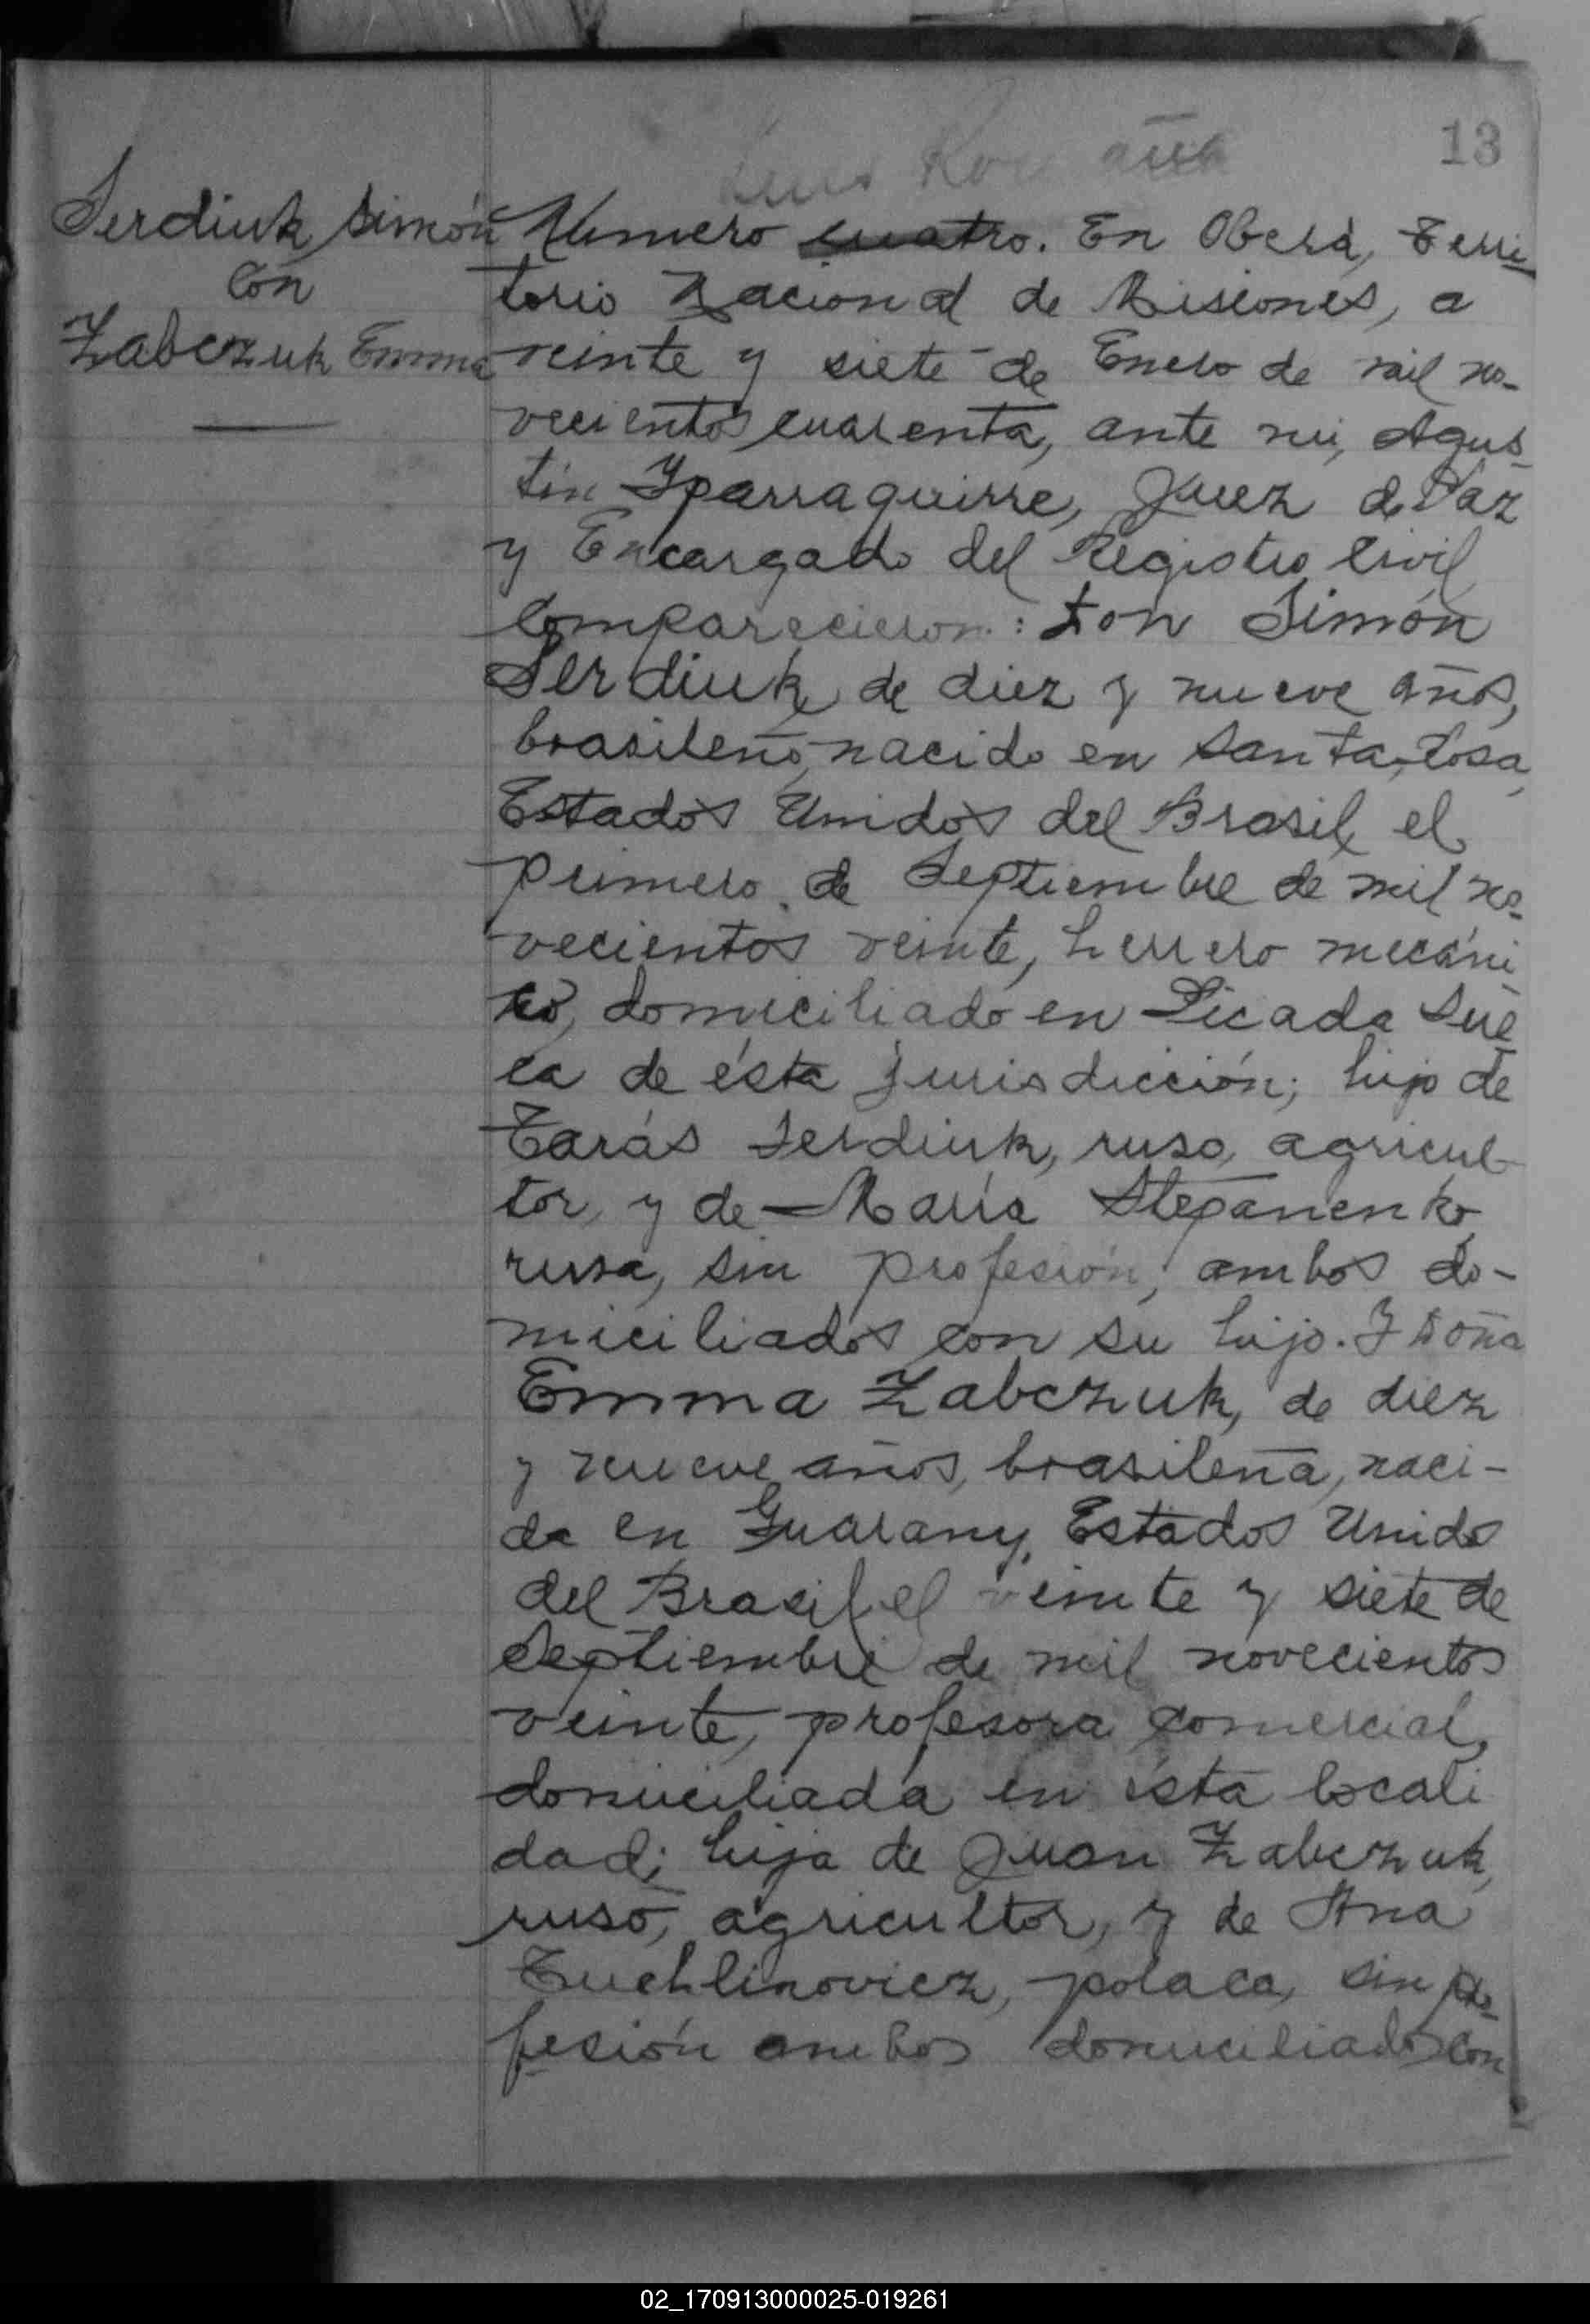 13
Serdiuk Simón
con
Zabczuk Emma
Número cuatro. En Oberá, Terri-
torio Nacional de Misiones, a
veinte y siete de Enero de mil no-
vecientos cuarenta, ante mi, Agus-
tín Yparraguirre, Juez de Paz
y Encargado del Registro Civil
comparecieron: Don Simón
Serdiuk de diez y nueve años,
brasileño, nacido en Santa Rosa,
Estados Unidos del Brasil, el
primero de Septiembre de mil no-
vecientos veinte, herrero mecáni
co, domiciliado en Picada Sue-
ca de ésta jurisdicción; hijo de
Tarás Serdiuk, ruso, agricul-
tor, y de María Stepanenko,
rusa, sin profesión, ambos do-
miciliados con su hijo. Y Doña
Emma Zabczuk, de diez
y nueve años, brasileña, naci-
da en Guarany, Estados Unidos
del Brasil, el veinte y siete de
Septiembre de mil novecientos
veinte, profesora comercial,
domiciliada en ésta locali
dad; hija de Juan Zabczuk,
ruso, agricultor, y de Ana
Tuchlinovicz, polaca, sin pro-
fesión ambos domiciliados con
02_170913000025-019261